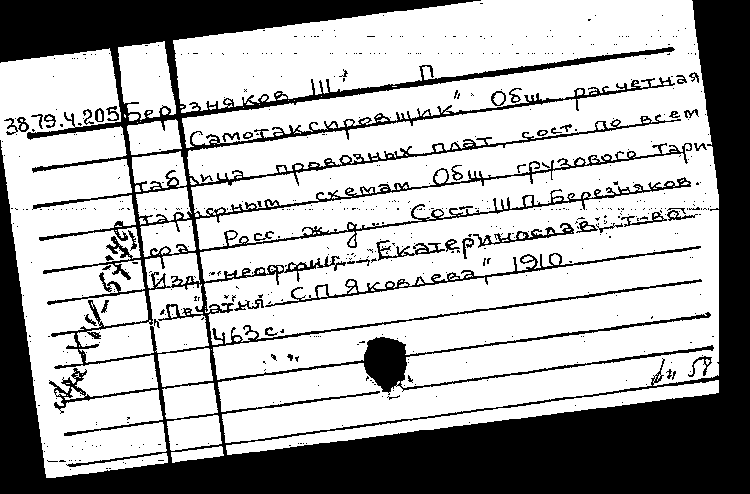 38.79.4.205 Березняков, Ш. П.
"Самотаксировщик". Общ. расчетная
таблица провозных плат, сост. по всем
тарифным схемам Общ. грузового тари-
фа Росс. ж. д. Сост. Ш. П. Березняков.
Изд. неофиц. Екатеринослав, т-во
"Печатня С. П. Яковлева", 1910.
463 с.